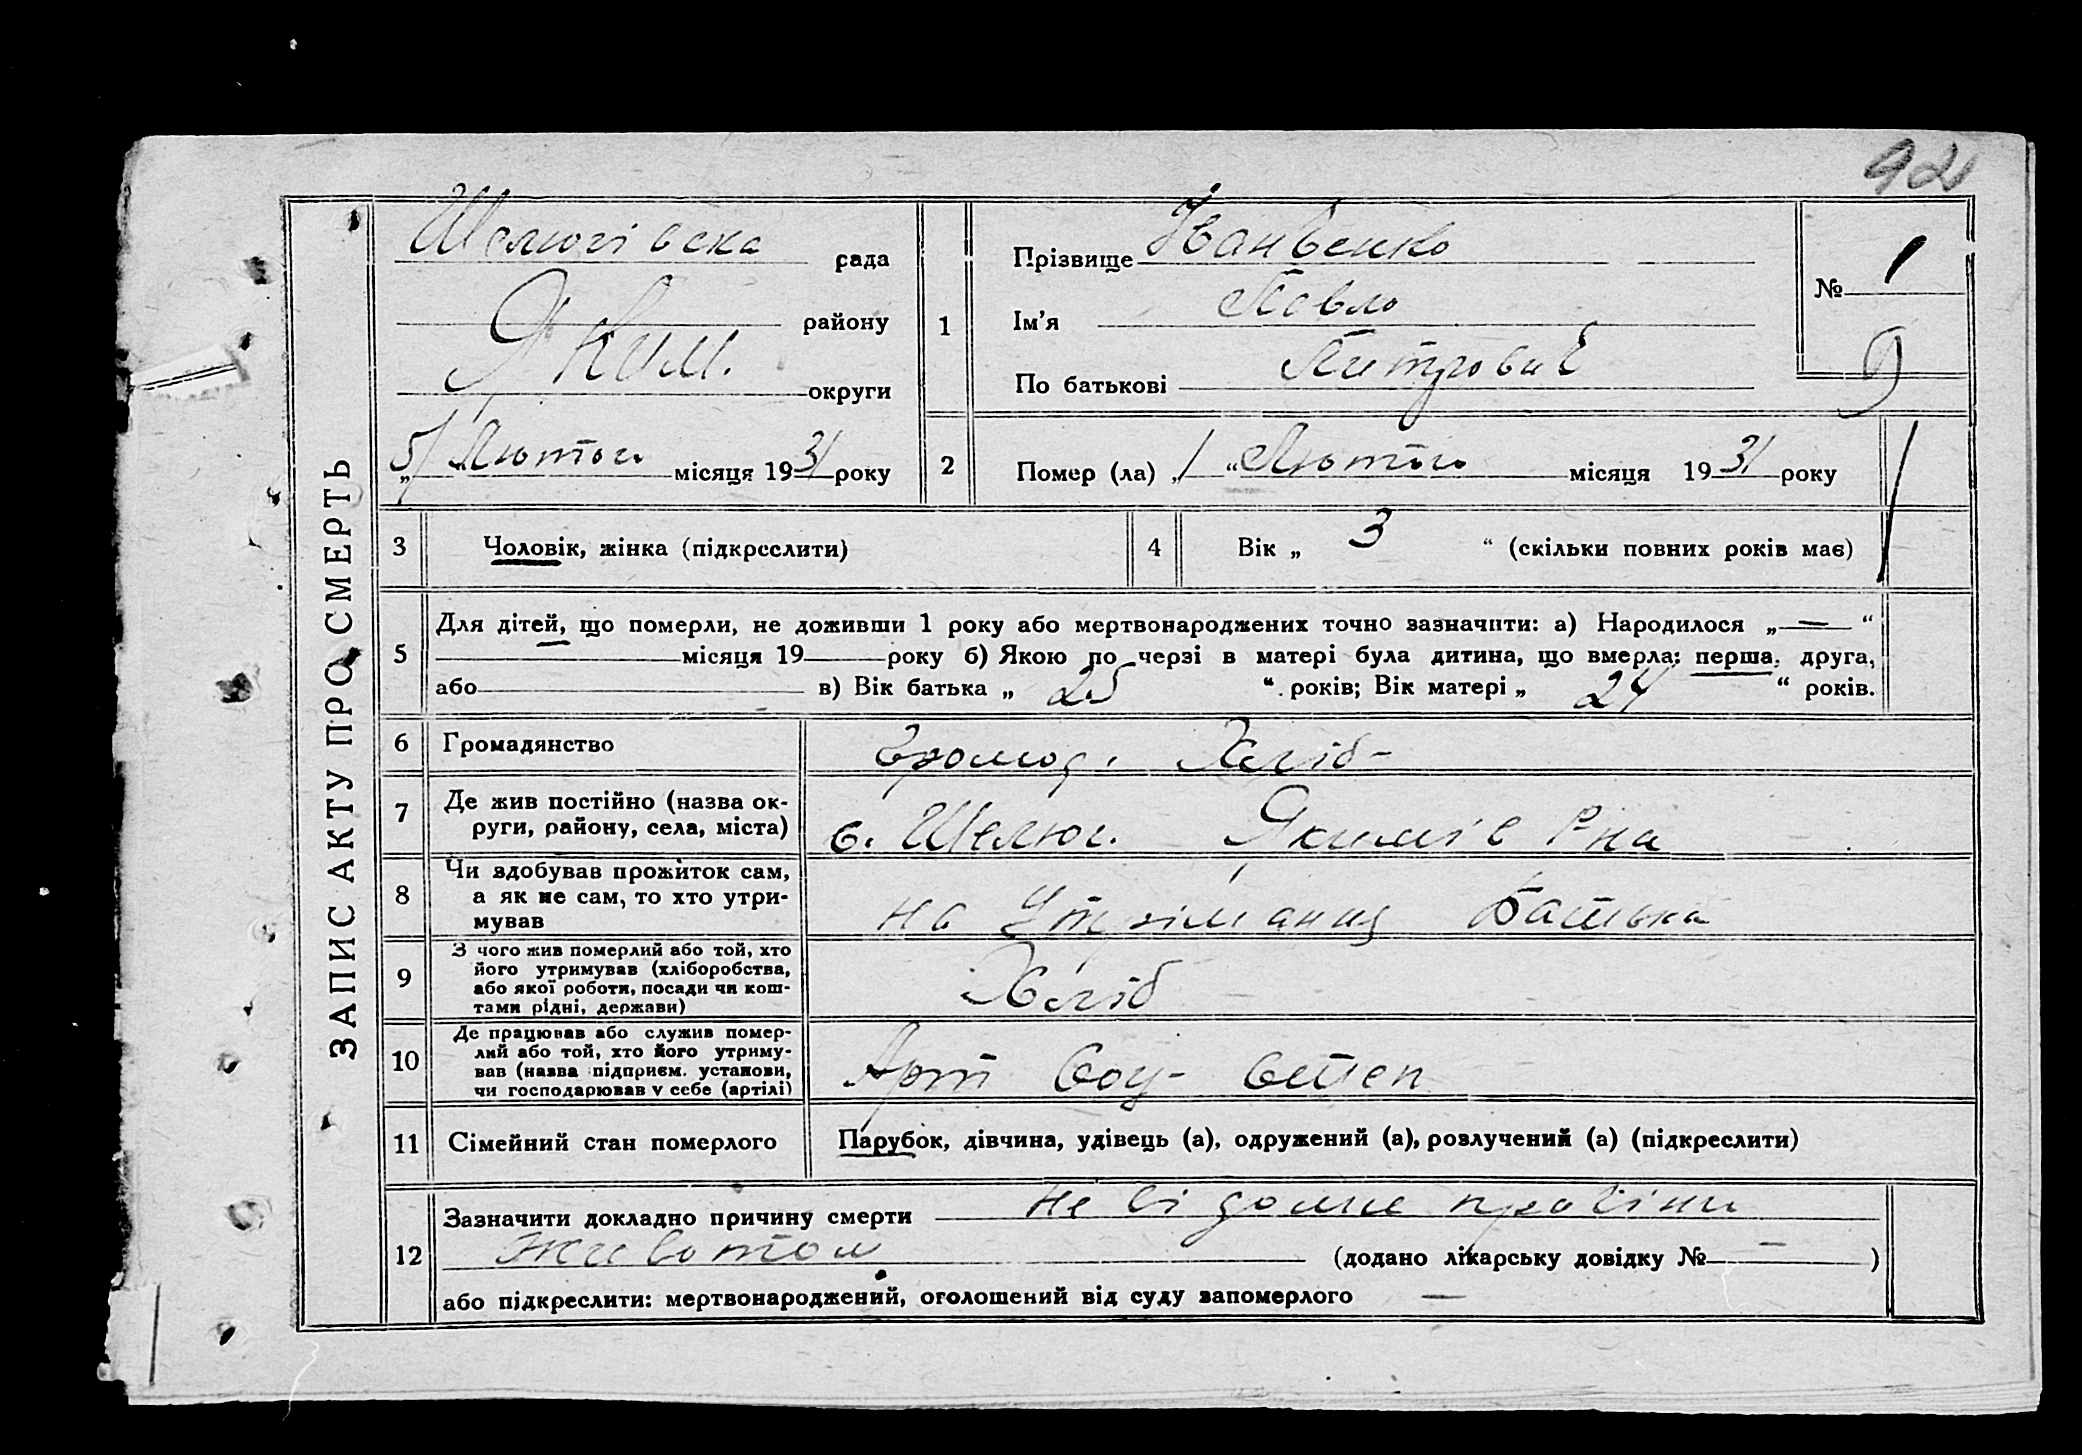 92
ЗАПИС АКТУ ПРО СМЕРТЬ
Шелюгівска рада
району
Яким.
округи
„5“ Лютого місяця 1931 року
1
Прізвище Іванченко
Ім'я Повло
По батькові Питрович
№ 1
2
Помер (ла) „1“ Лютого місяця 1931 року
3
Чоловік, жінка (підкреслити)
4
Вік „ 3 “ (скільки повних років має)
5
Для дітей, що померли, не доживши 1 року або мертвонароджених точно зазначити: а) Народилося „ — “
місяця 19 року б) Якою по черзі в матері була дитина, що вмерла: перша, друга,
або в) Вік батька „ 25 “ років; Вік матері „ 24 “ років.
6
Громадянство
Громод. Хліб-
7
Де жив постійно (назва ок-
руги, району, села, міста)
с. Шелюг. Якимів Р-на
8
Чи здобував прожиток сам,
а як не сам, то хто утри-
мував
на Утріманні Батька
9
З чого жив померлий або той, хто
його утримував (хліборобства,
або якої роботи, посади чи кош-
тами рідні, держави)
Хліб
10
Де працював або служив помер-
лий або той, хто його утриму-
вав (назва підприєм. установи,
чи господарював у себе (артілі)
Арт Соц- Степ
11
Сімейний стан померлого
Парубок, дівчина, удівець (а), одружений (а), розлучений (а) (підкреслити)
12
Зазначити докладно причину смерти не відомие прочіни
животом (додано лікарську довідку № — )
або підкреслити: мертвонароджений, оголошений від суду запомерлого —